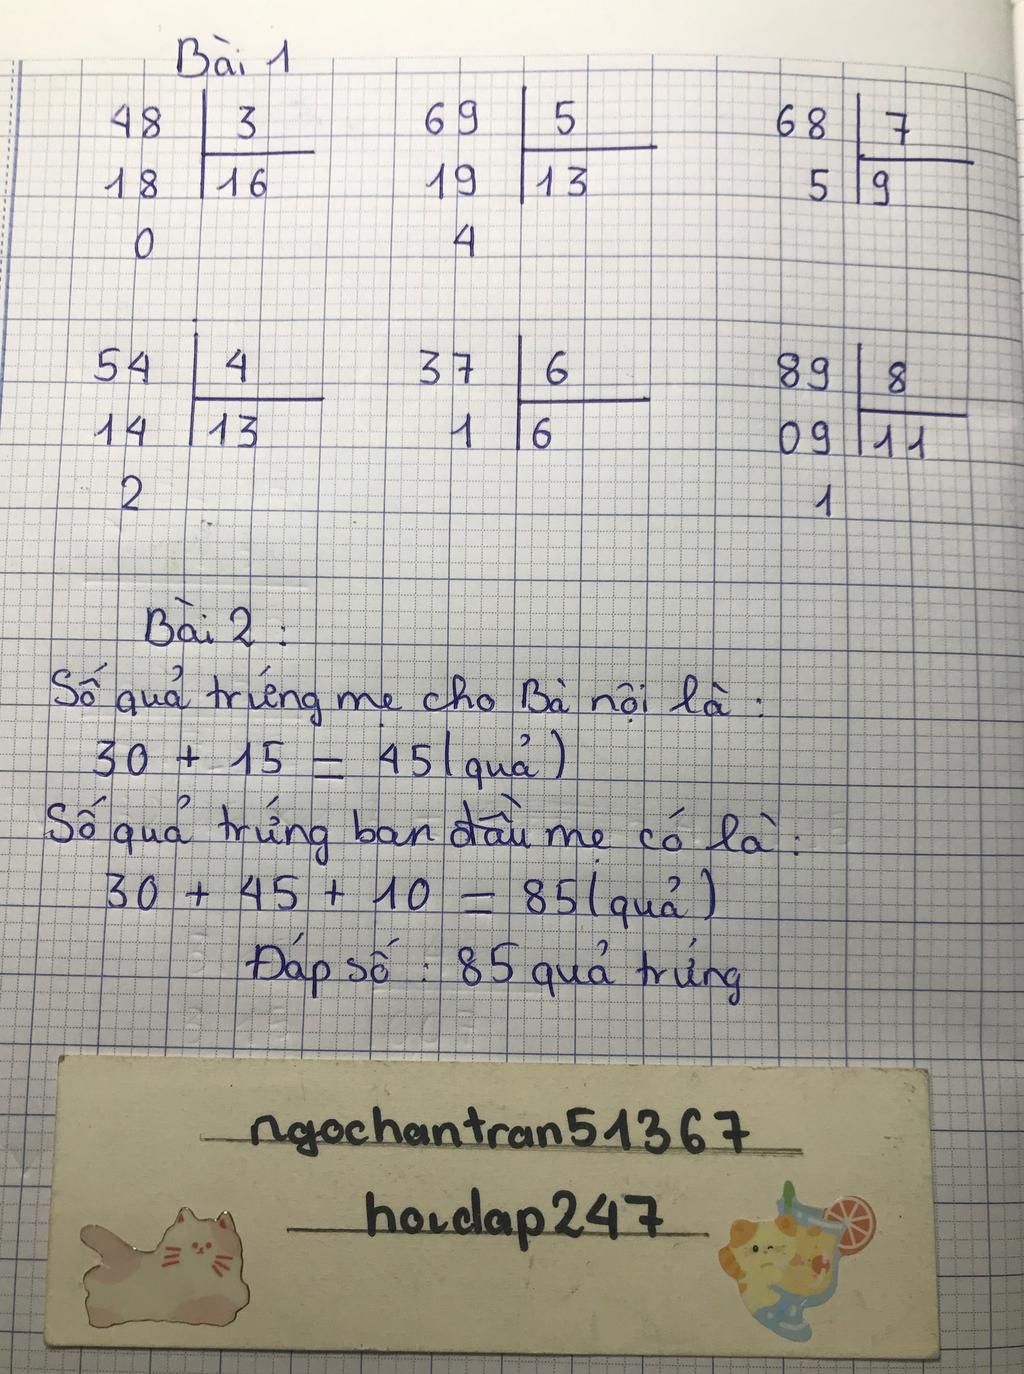 Bài 1
48 3 69 5 68 7
18 16 19 13 5 9
0 4
54 4 37 6 89 8
14 13 1 6 09 11
2 1
Bài 2 :
Số quả trứng mẹ cho Bà nội là :
30 + 15 = 45 (quả)
Số quả trứng ban đầu mẹ có là :
30 + 45 + 10 = 85 (quả)
Đáp số : 85 quả trứng
ngochantran51367
hoidap247